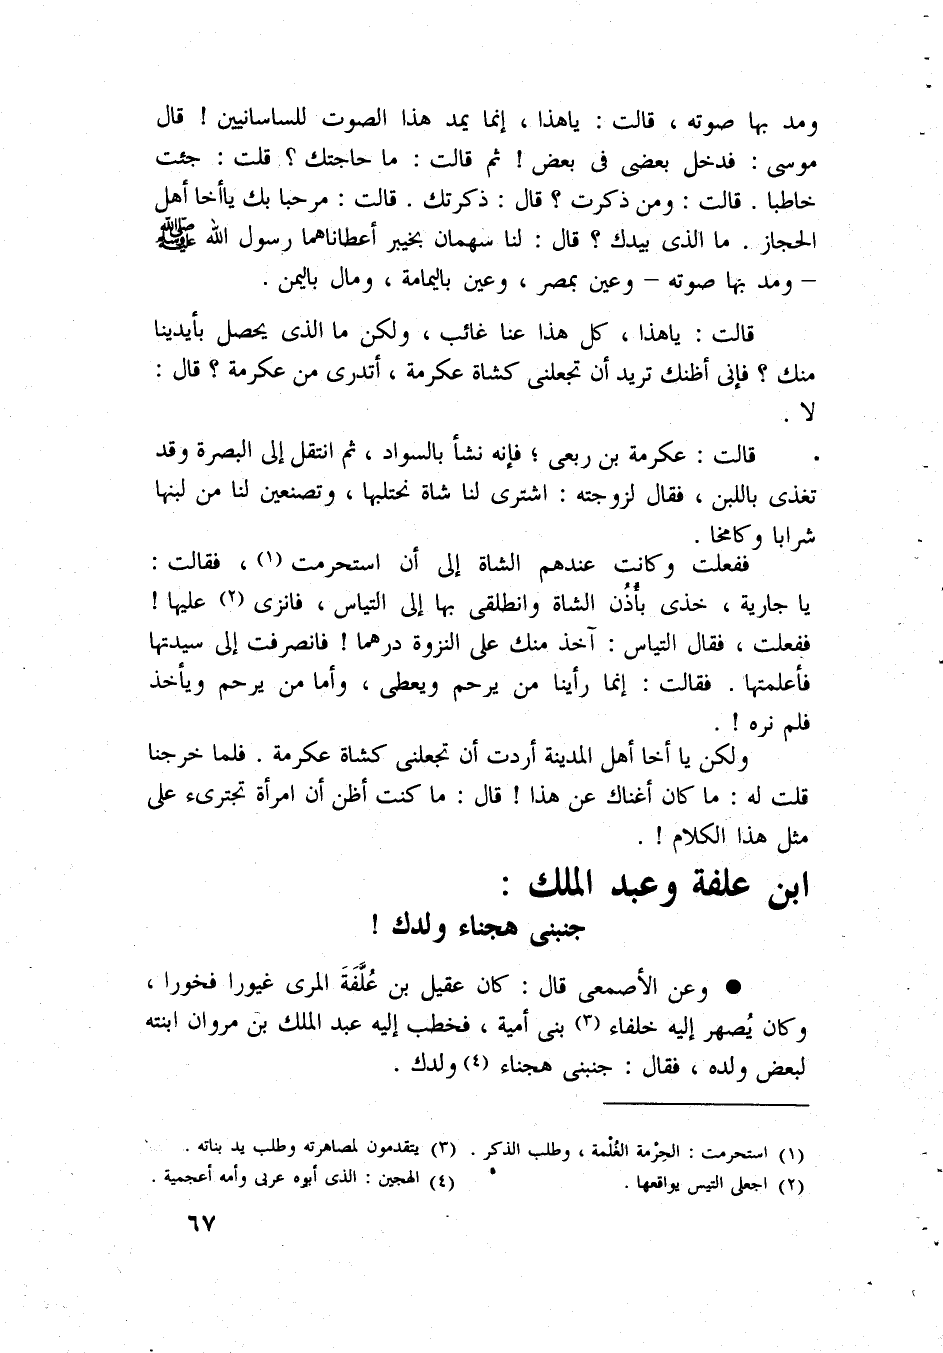 ومد بها صوته ، قالت : ياهذا ، إنما يمد هذا الصوت للساسانيين ! قال
موسى : فدخل بعضى فى بعض ! ثم قالت : ما حاجتك ؟ قلت : جئت
خاطبا . قالت : ومن ذكرت ؟ قال : ذكرتك . قالت : مرحبا بك ياأخا أهل
الحجاز . ما الذى بيدك ؟ قال : لنا سهمان بخيبر أعطاناهما رسول الله ﷺ
– ومد بها صوته – وعين بمصر ، وعين باليمامة ، ومال باليمن .
قالت : ياهذا ، كل هذا عنا غائب ، ولكن ما الذى يحصل بأيدينا
منك ؟ فإنى أظنك تريد أن تجعلنى كشاة عكرمة ، أتدرى من عكرمة ؟ قال :
لا .
قالت : عكرمة بن ربعى ؛ فإنه نشأ بالسواد ، ثم انتقل إلى البصرة وقد
تغذى باللبن ، فقال لزوجته : اشترى لنا شاة نحتلبها ، وتصنعين لنا من لبنها
شرابا وكامخا .
ففعلت وكانت عندهم الشاة إلى أن استحرمت (١) ، فقالت :
يا جارية ، خذى بأُذُن الشاة وانطلقى بها إلى التياس ، فانزى (٢) عليها !
ففعلت ، فقال التياس : آخذ منك على النزوة درهما ! فانصرفت إلى سيدتها
فأعلمتها . فقالت : إنما رأينا من يرحم ويعطى ، وأما من يرحم ويأخذ
فلم نره ! .
ولكن يا أخا أهل المدينة أردت أن تجعلنى كشاة عكرمة . فلما خرجنا
قلت له : ما كان أغناك عن هذا ! قال : ما كنت أظن أن امرأة تجترىء على
مثل هذا الكلام ! .
ابن علفة وعبد الملك :
جنبنى هجناء ولدك !
● وعن الأصمعى قال : كان عقيل بن عُلَّفَةَ المرى غيورا فخورا ،
وكان يُصهر إليه خلفاء (٣) بنى أمية ، فخطب إليه عبد الملك بن مروان ابنته
لبعض ولده ، فقال : جنبنى هجناء (٤) ولدك .
(١) استحرمت : الحِرْمة الغُلْمة ، وطلب الذكر . (٣) يتقدمون لمصاهرته وطلب يد بناته .
(٢) اجعلى التيس يواقعها . (٤) الهجين : الذى أبوه عربى وأمه أعجمية .
٦٧